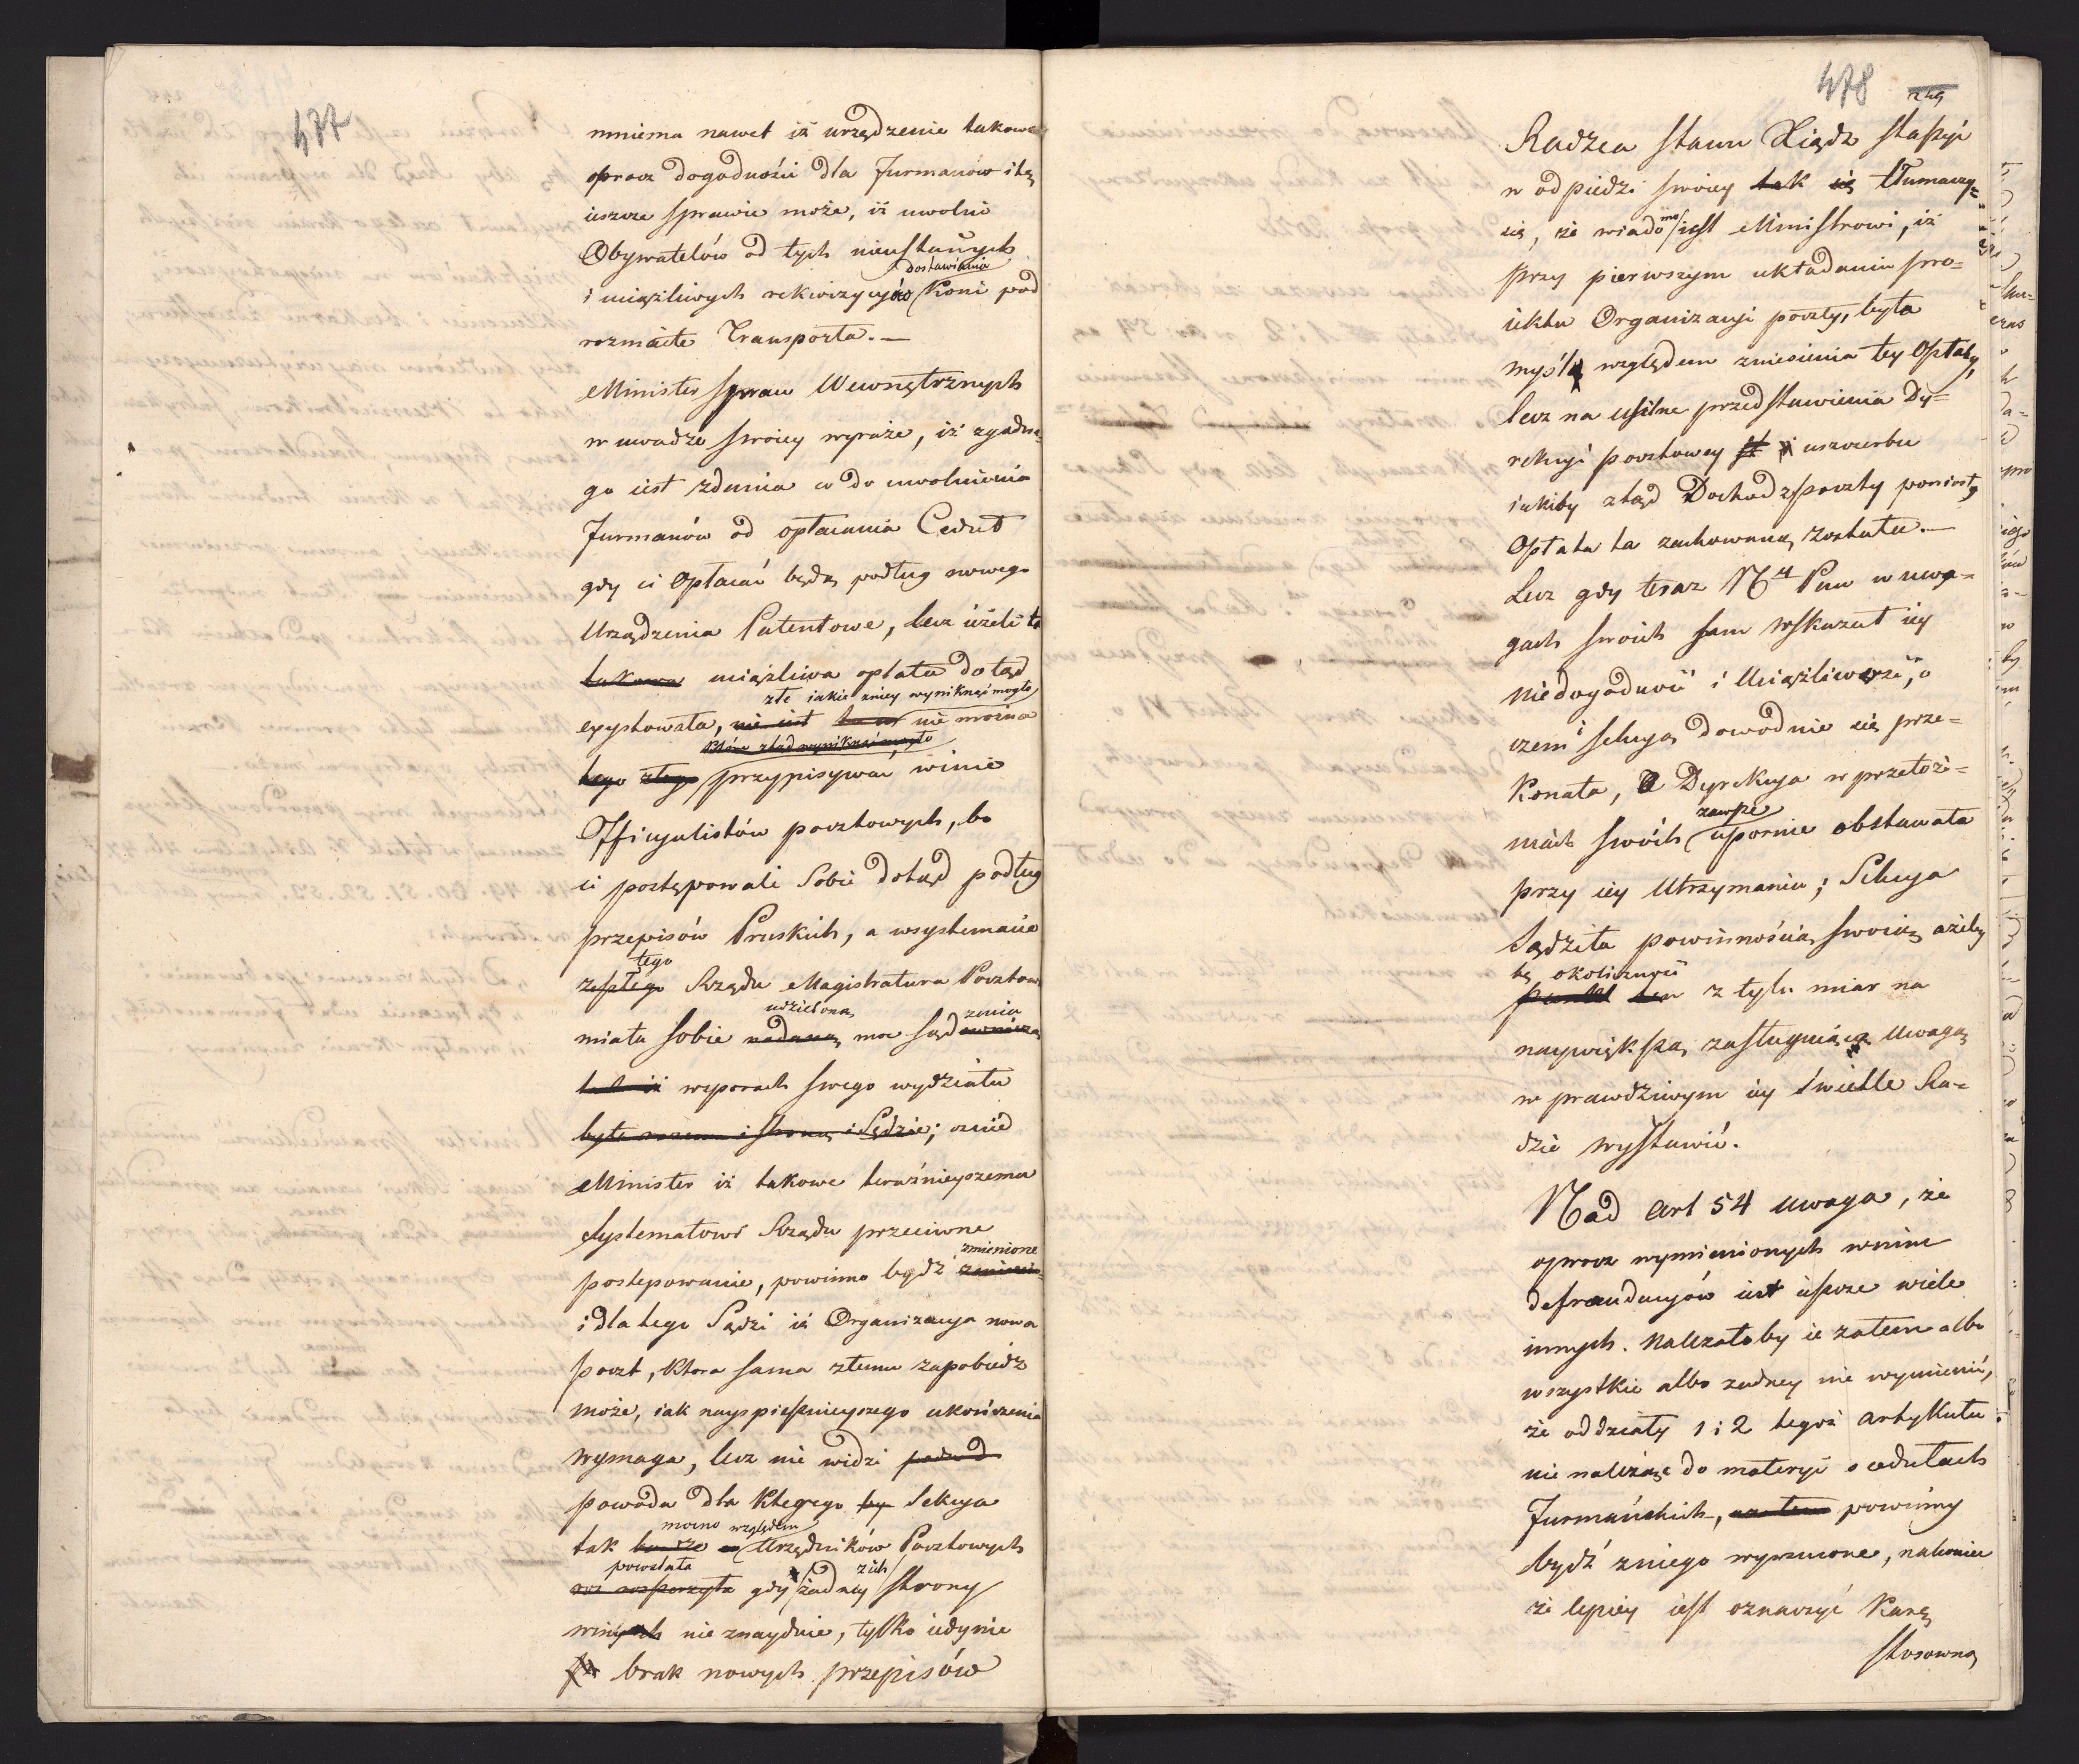 477
mniema nawet iż urządzenie takowe
oprocz dogodności dla Furmanow i tę
ieszcze sprawić może, iż uwolni
Obywatelów od tych nieustannych
dostawienia
i uciążliwych rekwizycyów Koni pod
rozmaite Transporta. —
Minister Spraw Wewnętrznych
w uwadze swoiey wyraża, iż zgadza
go iest zdania co do uwolnienia
Furmanów od opłacania Cedut
gdy ci Opłacać będą podług nowego
Urządzenia Patentowe, lecz ieżeli ta
takowa uciążliwa opłata dotąd
złe iakie zniey wyniknąć mogło
exystowała, nie iest nie można
które ztąd wyniknąć mogło
tego złego przypisywać winie
Officyalistów pocztowych, bo
ci postępowali Sobie dotąd podług
przepisów Pruskich, a wsystemacie
tego
zeszłego Rządu Magistratura Pocztow
udzieloną zenia
miała sobie nadaną moc sądowniczą
wsporach swego wydziału
była razem i stroną i Sędzią; oznie
Minister iż takowe teraźnieyszemu
Systematowi Rządu przeciwne
zmienione
postępowanie, powinno bydź
i dla tego Sądzi iż Organizacya nowa
poczt, ktora sama złemu zapobiedz
może, iak nayspieszniejszego ukończenia
wymaga, lecz nie widzi powod
powodu dla ktorego by Sekcya
mocno względem
tak bardzo Urzędników Pocztowych
powstała zich
gdy żadney strony
winnych nie znayduie, tylko iedynie
brak nowych przepisów
478
Radzca Stanu Xiądz Staszyc
w odpiedzi swoiey tak się tłumaczy=
mo
się, że wiado iest Ministrowi, iż
przy pierwszym układaniu pro=
iektu Organizacyi poczty, była
myśl względem zniesienia tey Opłaty,
lecz na usilne przedstawienia Dy=
rekcyi pocztowey i uszczerbu
iakiby ztąd Dochod zpoczty poniosł,
Opłata ta zachowaną została. —
Lecz gdy teraz Mr Pan w uwa=
gach swoich sam wskazał iey
niedogodność i Uciążliwość, o
czem i Sekcya dowodnie się prze=
konała, a Dyrekcya w przełoże=
zawsze
niach swoich upornie obstawała
przy iey Utrzymaniu; Sekcya
Sądziła powinnością swoią ażeby
tę okoliczność
punkt ten z tylu miar na
naywiększą zasługuiącą Uwagę
w prawdziwym iey świetle Ra=
dzie wystawić.
Nad Art 54 uwaga, że
oprocz wymienionych wnim
defraudacyów iest ieszcze wiele
innych. Należałoby ie zatem albo
wszystkie albo żadney nie wymienić,
że oddziały 1 i 2 tegoż artykułu
nie należąc do materyi o cedułach
Furmańskich, zatem powinny
bydź zniego wyrzucone, nakoniec
że lepiey iest oznaczyć Karę
stosowną